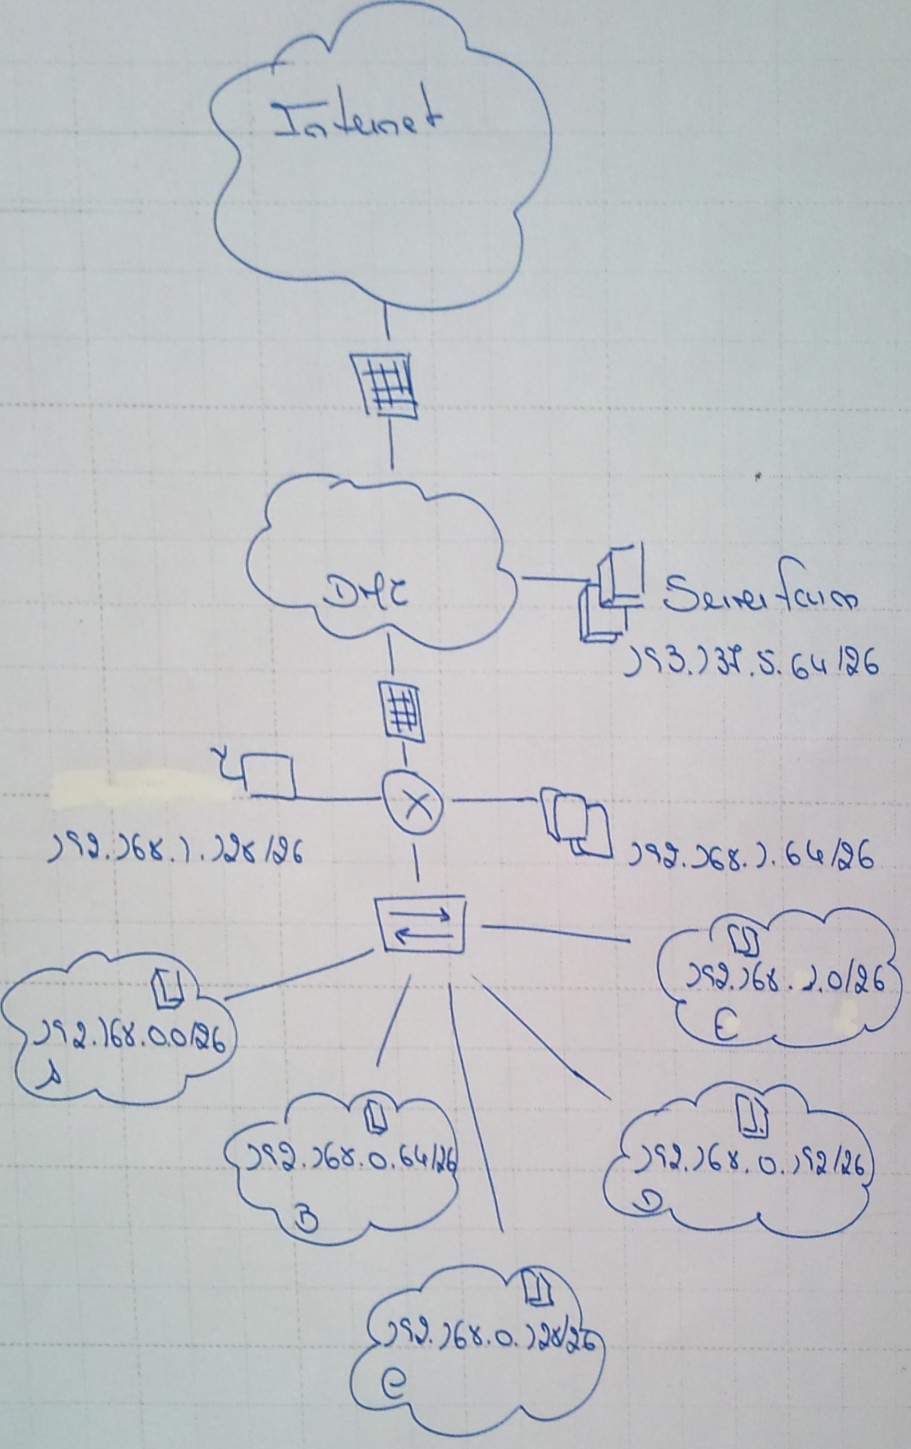 Internet
DMZ
Serverfarm
193.137.5.64/26
192.168.1.128/26
192.168.1.64/26
192.168.1.0/26
E
192.168.0.0/26
A
192.168.0.64/26
B
192.168.0.192/26
D
192.168.0.128/26
C